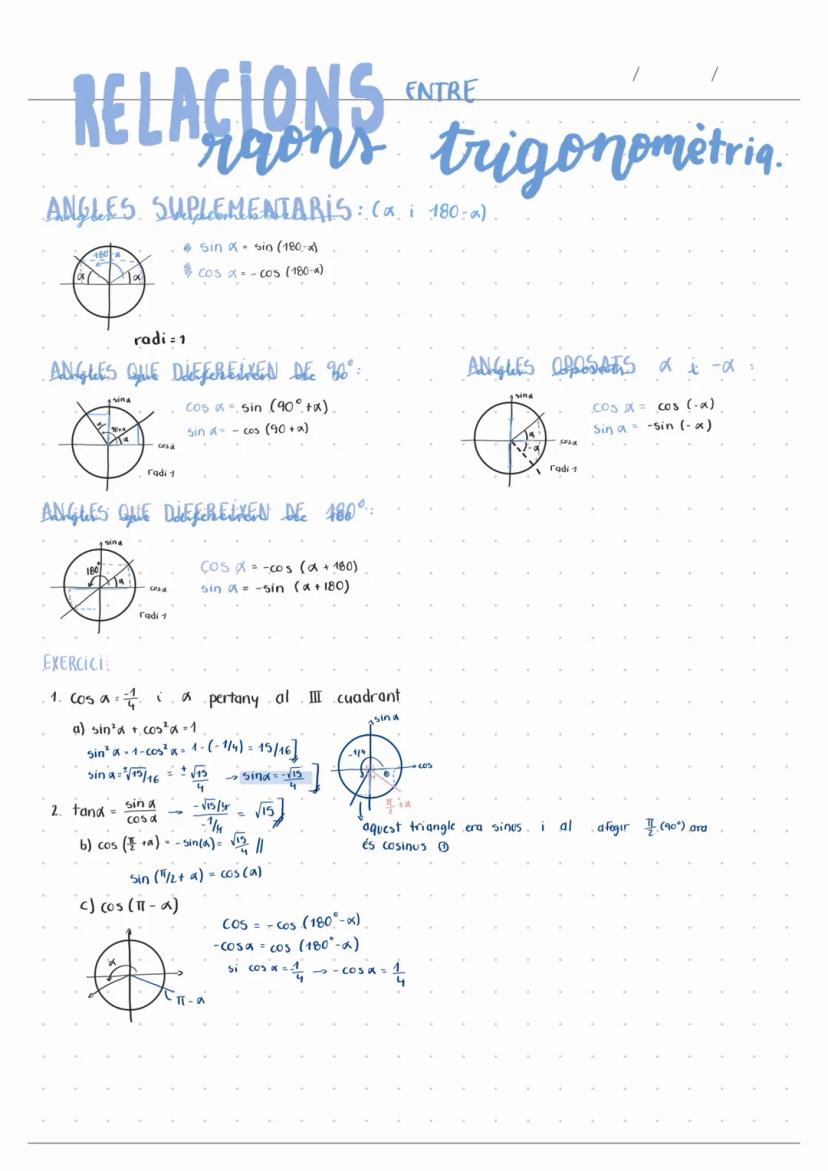 RELACIONS ENTRE
raons trigonomètriq.
/ /
ANGLES SUPLEMENTARIS: (α i 180-α)
sin α = sin (180-α)
cos α = - cos (180-α)
180-α
α α
radi = 1
ANGLES QUE DIFEREIXEN DE 90°:
sin α
cos α = sin (90° + α)
sin α = - cos (90 + α)
90+α
α
cos α
radi 1
ANGLES OPOSATS α i -α :
sin α
cos α = cos (-α)
sin α = -sin (-α)
α
-α
cos α
radi 1
ANGLES QUE DIFEREIXEN DE 180°:
sin α
180°
α
cos α
radi 1
cos α = -cos (α + 180)
sin α = -sin (α + 180)
EXERCICI:
1. cos α = -1/4 i α pertany al III cuadrant
a) sin²α + cos²α = 1
sin²α = 1 - cos²α = 1 - (-1/4) = 15/16]
sin α = ±√15/16 = ±√15/4 → sin α = -√15/4 ]
sin α
-1/4
cos
①
π/2 + α
2. tan α = sin α/cos α → -√15/4/-1/4 = √15]
aquest triangle era sinus i al afegir π/2 (90°) ara
és cosinus ①
b) cos (π/2 + α) = - sin(α) = √15/4 //
sin (π/2 + α) = cos (α)
c) cos (π - α)
α
π - α
cos = - cos (180° - α)
-cos α = cos (180° - α)
si cos α = -1/4 → - cos α = 1/4